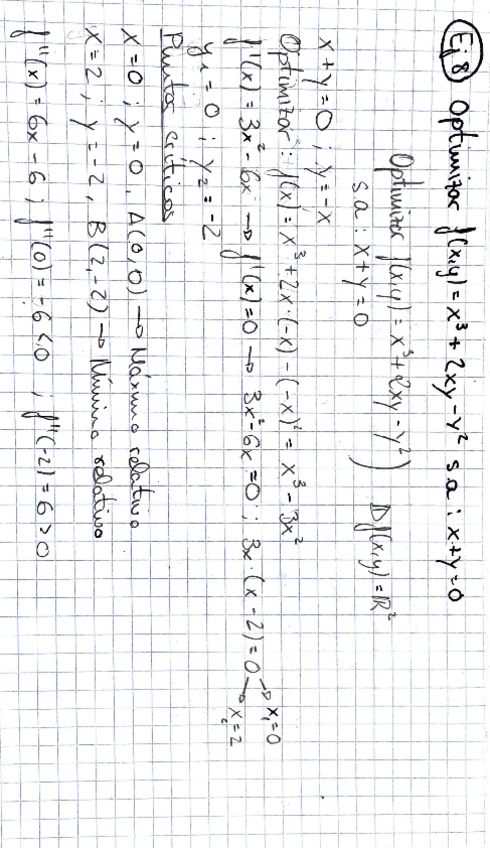 Ej. 8 Optimizar f(x,y) = x³ + 2xy - y² s a : x+y=0
Optimizar f(x,y) = x³ + 2xy - y² ) Df(x,y) = R²
s a : x + y = 0
x + y = 0 ; y = -x
Optimizar : f(x) = x³ + 2x · (-x) - (-x)² = x³ - 3x²
f'(x) = 3x² - 6x → f'(x) = 0 → 3x² - 6x = 0 ; 3x · (x - 2) = 0 → x₁ = 0 → x₂ = 2
y₁ = 0 ; y₂ = -2
Puntos críticos
x = 0 ; y = 0, A(0,0) → Máximo relativo
x = 2 ; y = -2, B(2,-2) → Mínimo relativo
f''(x) = 6x - 6 ; f''(0) = -6 < 0 ; f''(-2) = 6 > 0